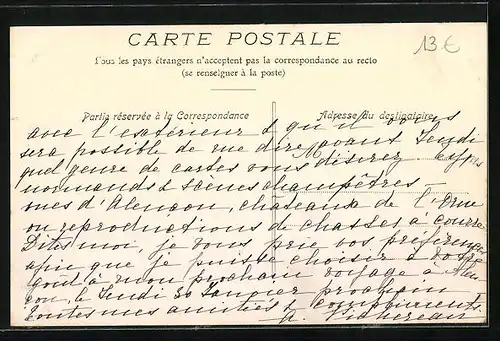 13 €
CARTE POSTALE
Tous les pays étrangers n'acceptent pas la correspondance au recto
(se renseigner à la poste)
Partie réservée à la Correspondance
Adresse du destinataire
avec l'extérieur & qu'il vous
sera possible de me dire avant Jeudi
quel genre de cartes vous désirez types
normands & scènes champêtres
vues d'Alençon, châteaux de l'Orne
ou reproductions de chasses à courre
Dites moi, je vous prie vos préférences
afin que je puisse choisir à votre
goût à mon prochain voyage à Alen
çon, le Jeudi 30 Janvier prochain
Toutes mes amitiés & compliments